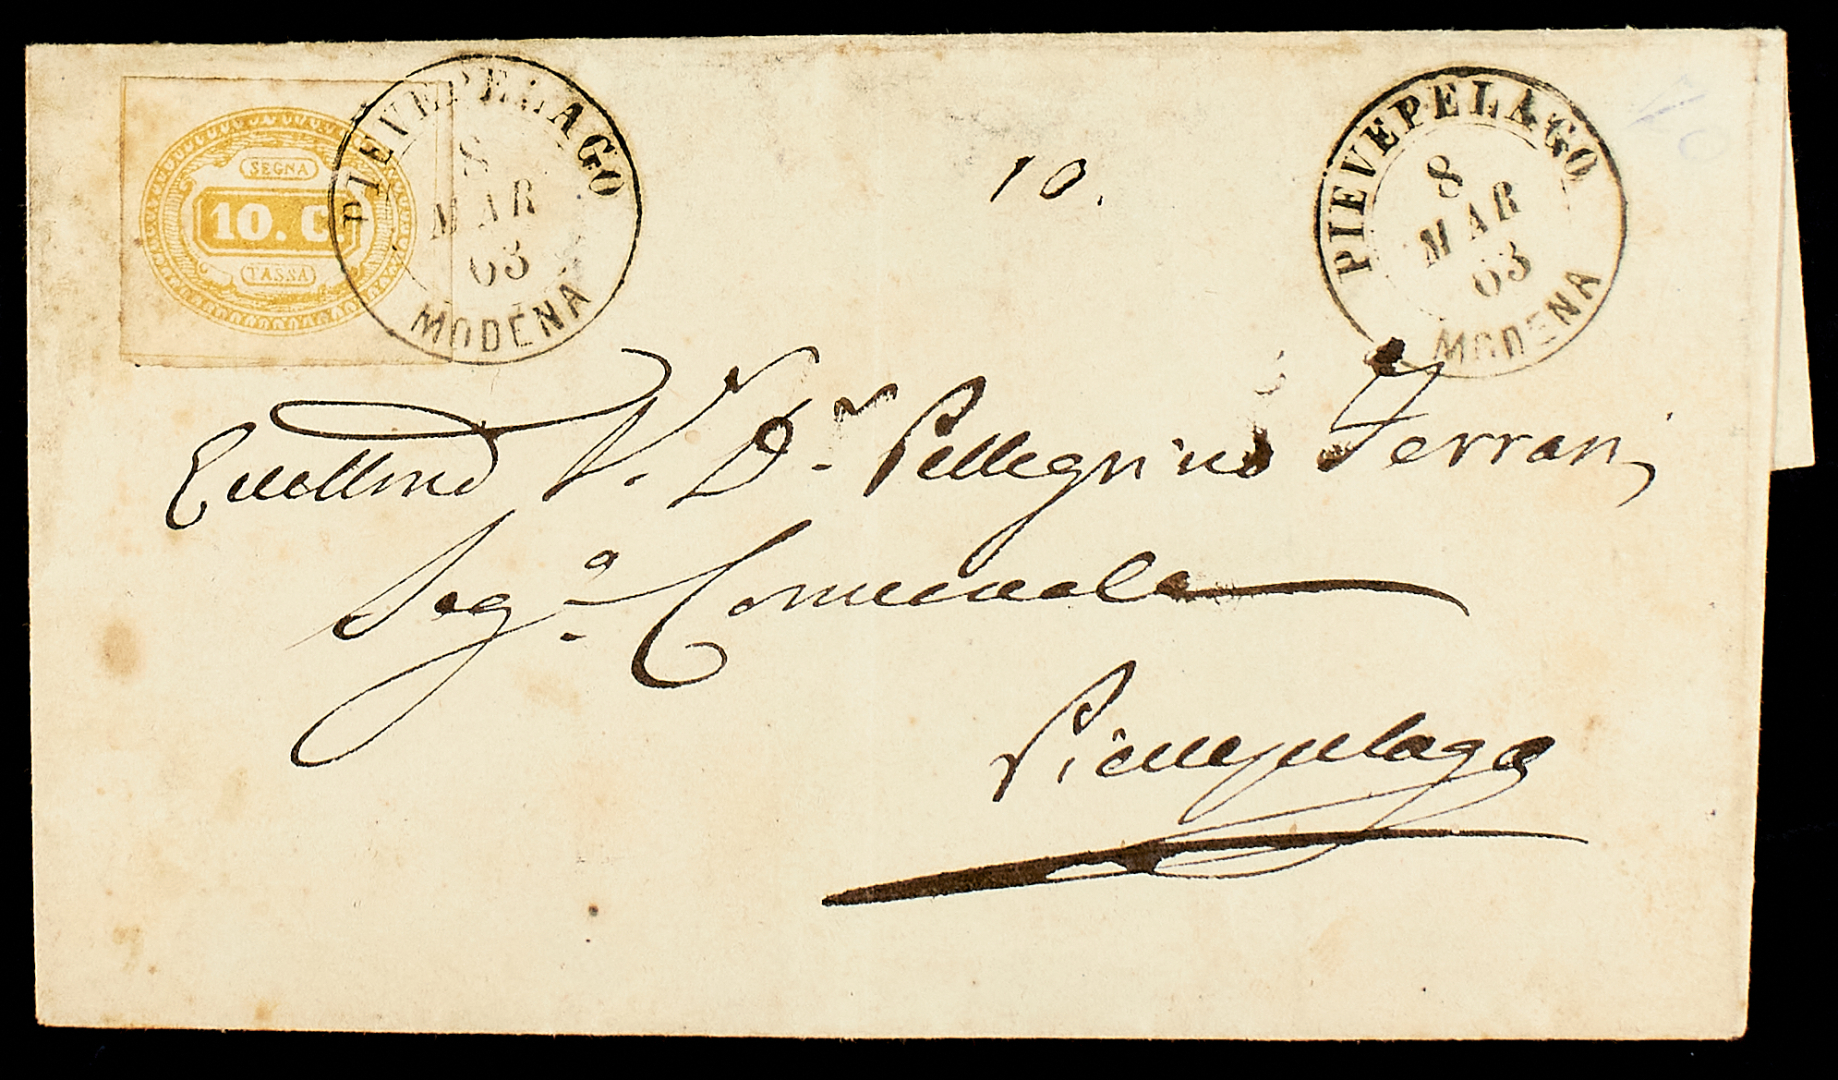 SEGNA
10. C.
TASSA
PIEVEPELAGO
8
MAR
63
MODENA
10.
PIEVEPELAGO
8
MAR
63
MODENA
10
Eccellmo V. Dr. Pellegrino Ferrari,
Sego. Comunale
Pievepelago